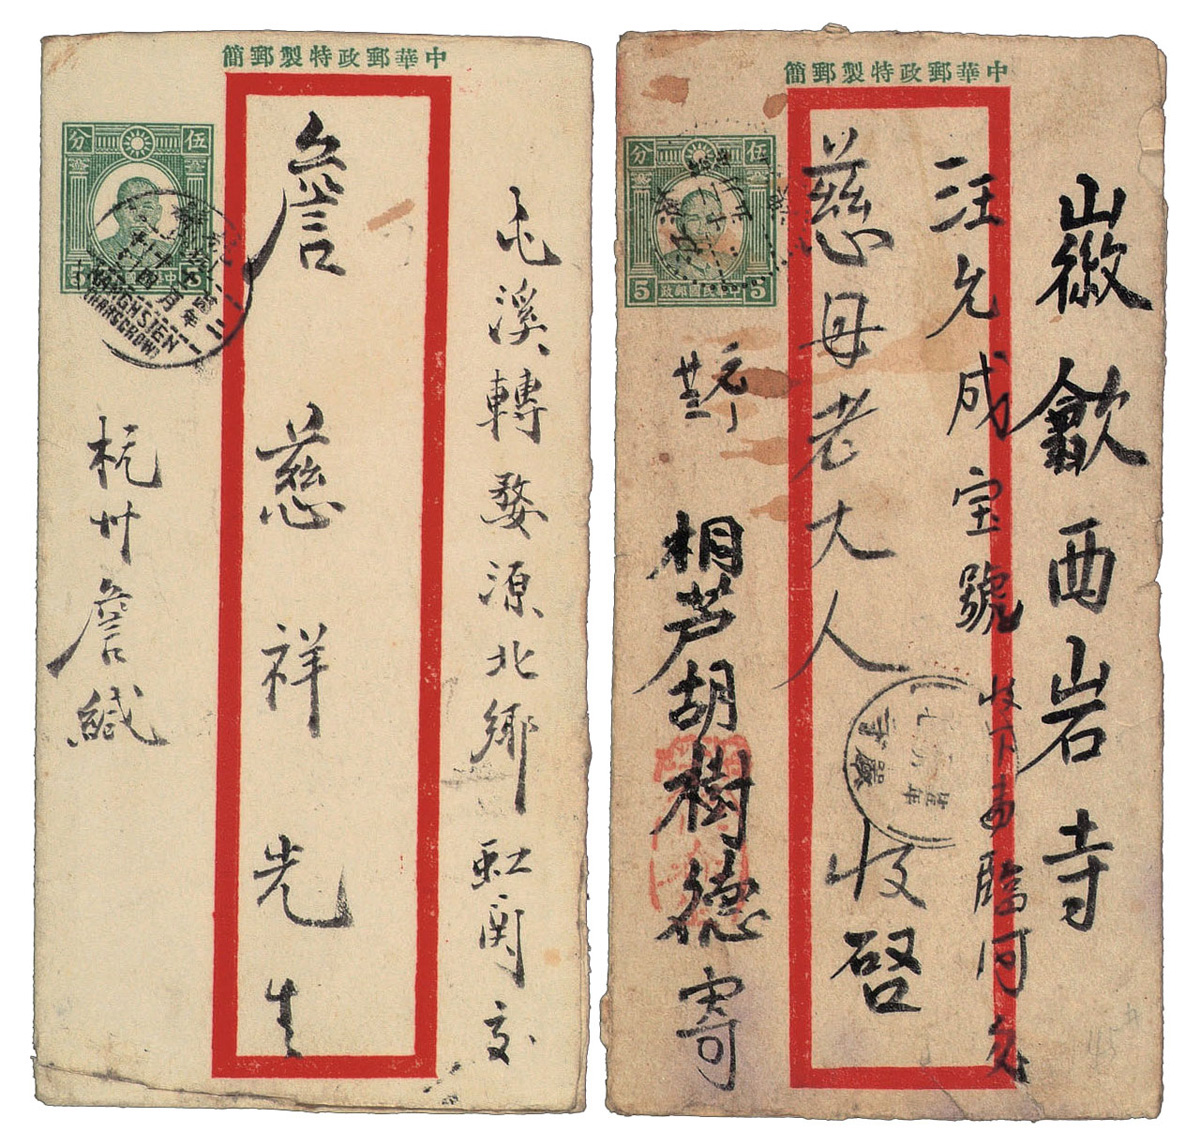 中華郵政特製郵簡
伍分
屯溪轉婺源北鄉虹関交
詹慈祥先生
杭州詹緘
HANGHSIEN
HANGCHOW
中華郵政特製郵簡
伍分
5 中華民國郵政 5
徽歙西岩寺
汪允成宝號收下専臨河交
慈母老大人 收啓
桐芦胡樹德寄